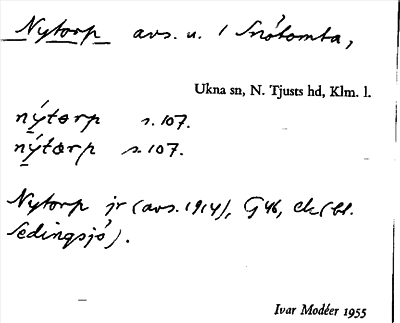 Nytorp avs. u. 1 Snåtomta,
Ukna sn, N. Tjusts hd, Klm. l.
nýtorp s. 107.
nýtærp s. 107.
Nytorp jr (avs. 1914), G46, ek (bl.
Sedingsjö).
Ivar Modéer 1955